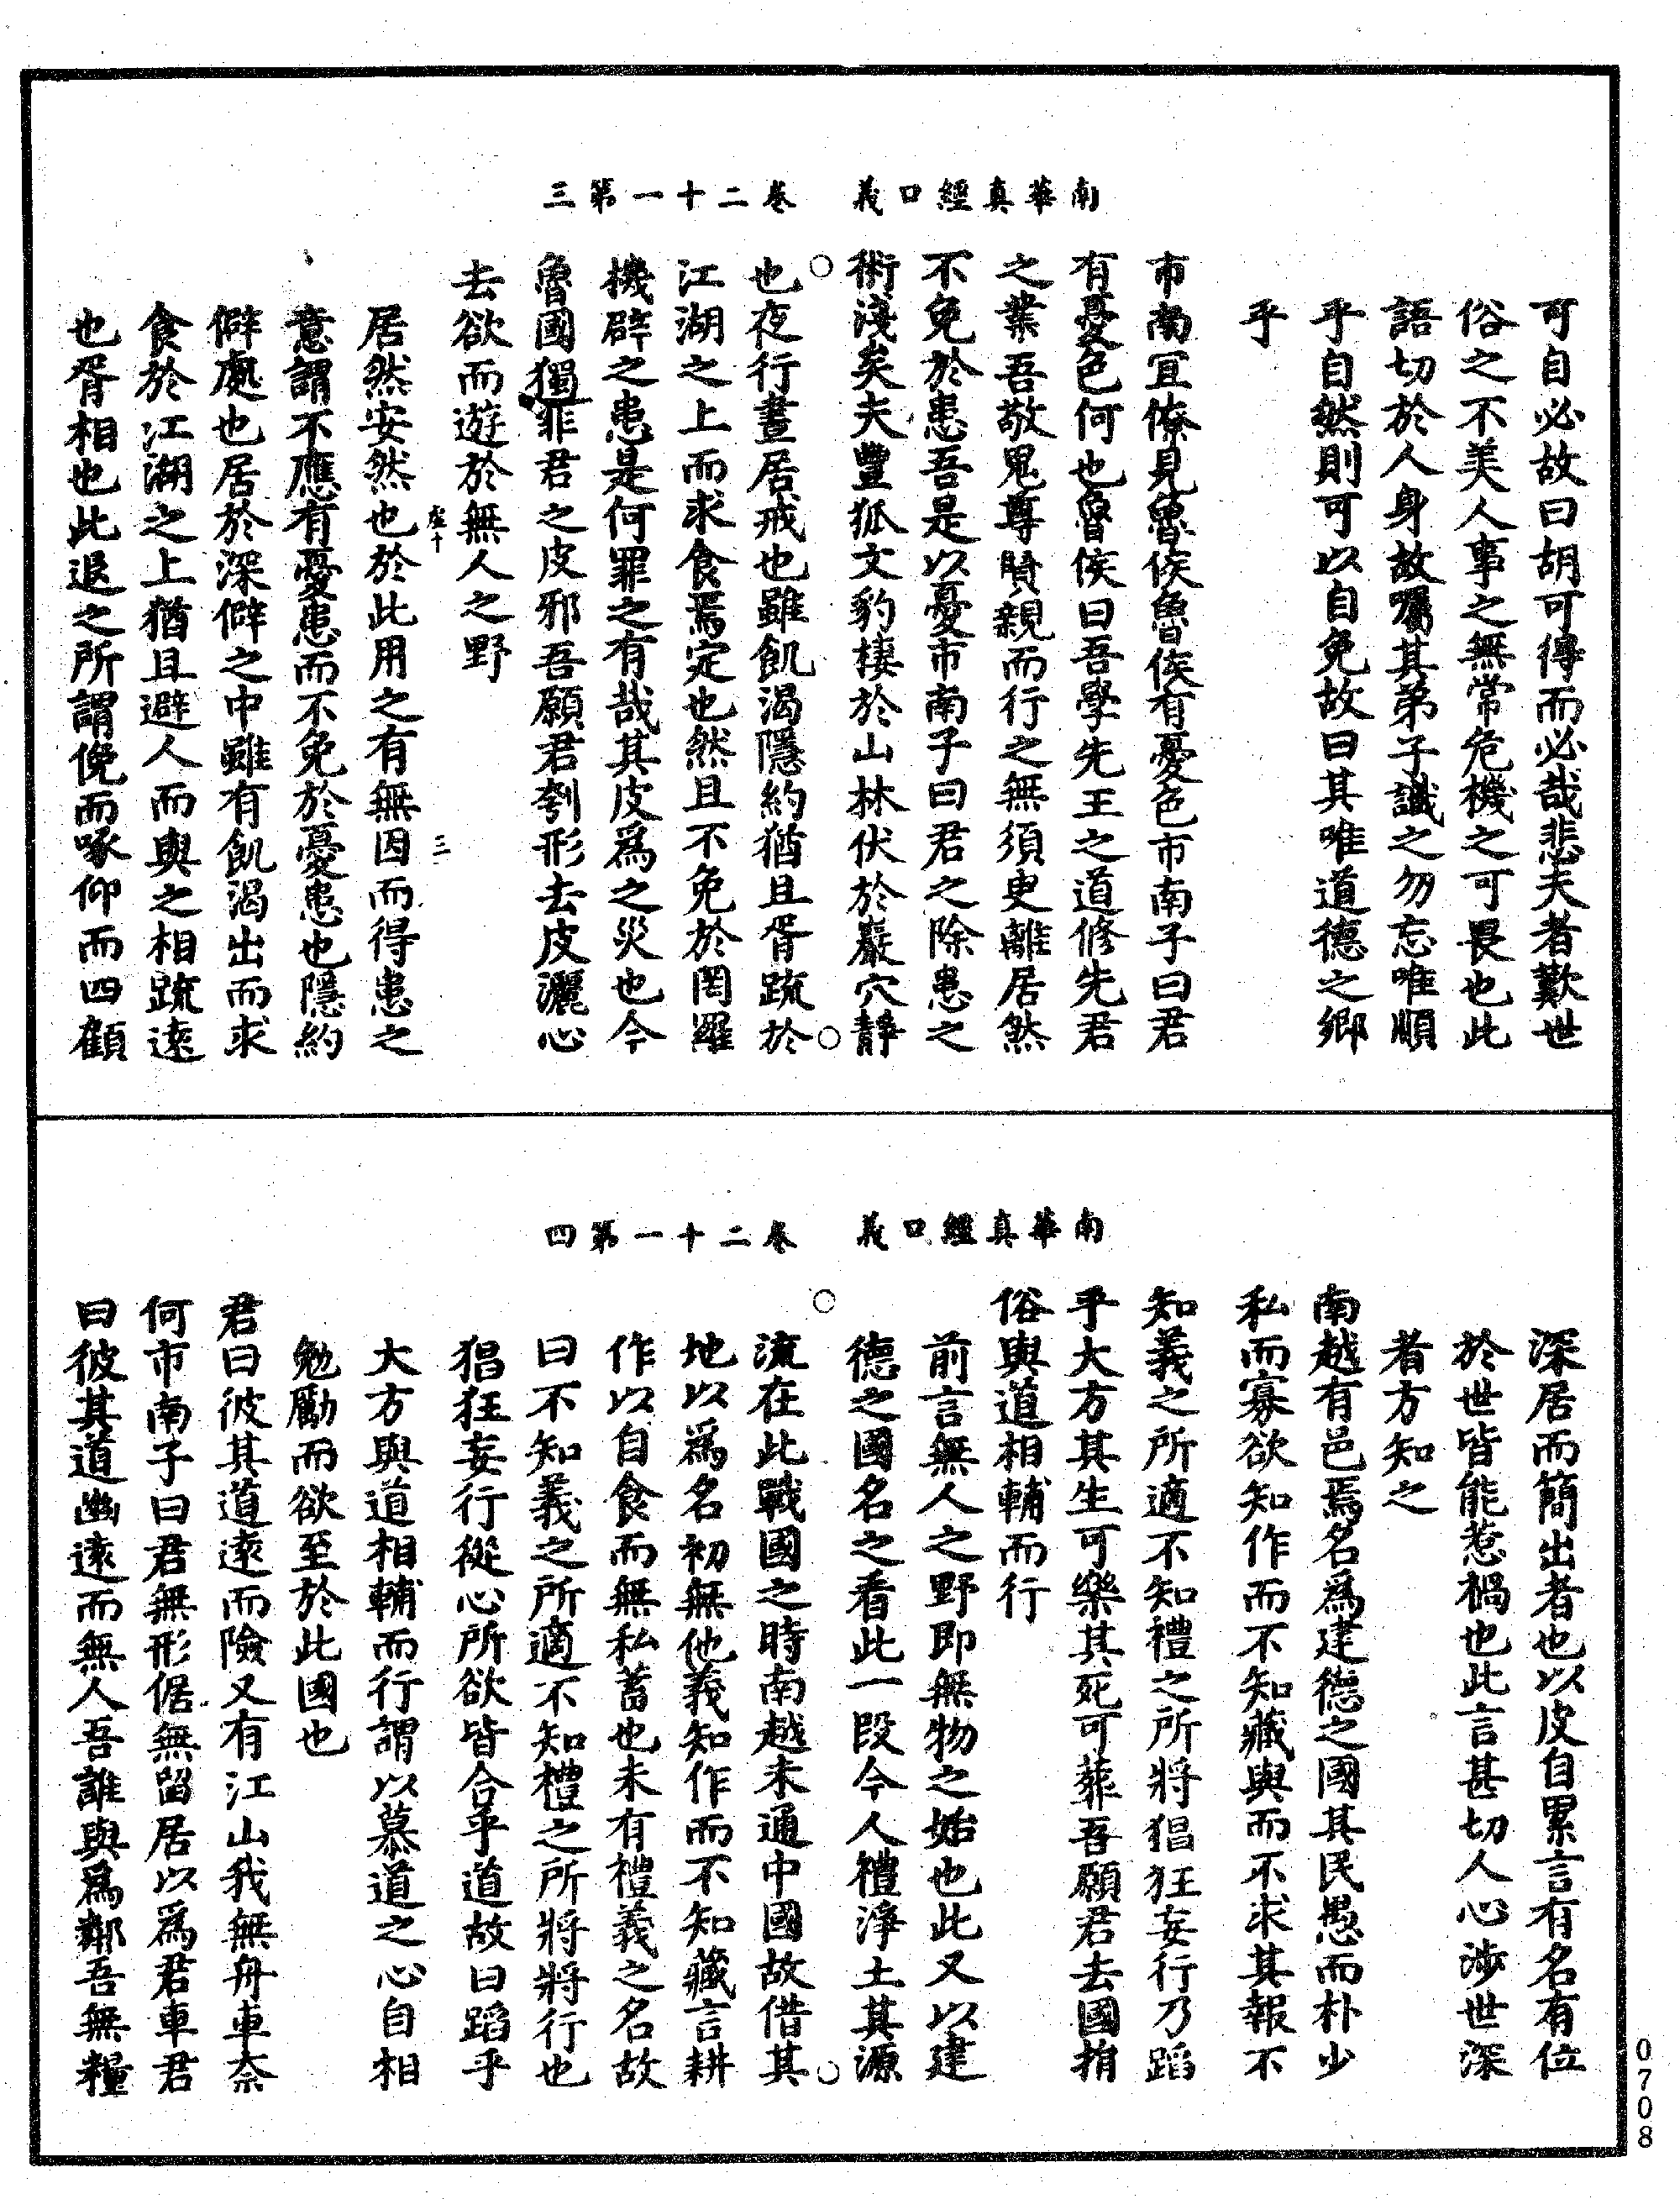 南華真經口義 卷二十一第三
可自必故曰胡可得而必哉悲夫者歎世
俗之不美人事之無常危機之可畏也此
語切於人身故囑其弟子識之勿忘唯順
乎自然則可以自免故曰其唯道德之鄉
乎
市南宜僚見魯侯魯侯有憂色市南子曰君
有憂色何也魯侯曰吾學先王之道修先君
之業吾敬鬼尊賢親而行之無須臾離居然
不免於患吾是以憂市南子曰君之除患之
術淺矣夫豐狐文豹棲於山林伏於巖穴靜
也夜行晝居戒也雖飢渴隱約猶且胥疏於
江湖之上而求食焉定也然且不免於罔羅
機辟之患是何罪之有哉其皮為之災也今
魯國獨非君之皮邪吾願君刳形去皮灑心
去欲而遊於無人之野
居然安然也於此用之有無因而得患之
意謂不應有憂患而不免於憂患也隱約
僻處也居於深僻之中雖有飢渴出而求
食於江湖之上猶且避人而與之相疏遠
也胥相也此退之所謂俛而啄仰而四顧
三
南華真經口義 卷二十一第四
深居而簡出者也以皮自累言有名有位
於世皆能惹禍也此言甚切人心涉世深
者方知之
南越有邑焉名為建德之國其民愚而朴少
私而寡欲知作而不知藏與而不求其報不
知義之所適不知禮之所將猖狂妄行乃蹈
乎大方其生可樂其死可葬吾願君去國捐
俗與道相輔而行
前言無人之野即無物之始也此又以建
德之國名之看此一段今人禮淨土其源
流在此戰國之時南越未通中國故借其
地以為名初無他義知作而不知藏言耕
作以自食而無私蓄也未有禮義之名故
曰不知義之所適不知禮之所將將行也
猖狂妄行從心所欲皆合乎道故曰蹈乎
大方與道相輔而行謂以慕道之心自相
勉勵而欲至於此國也
君曰彼其道遠而險又有江山我無舟車柰
何市南子曰君無形倨無留居以為君車君
曰彼其道幽遠而無人吾誰與為鄰吾無糧
0708